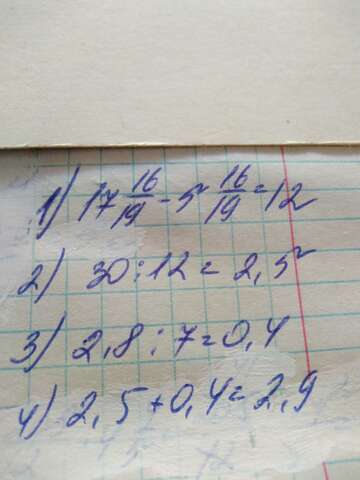 1) 17 16/19 - 5 16/19 = 12
2) 30 : 12 = 2,5
3) 2,8 : 7 = 0,4
4) 2,5 + 0,4 = 2,9